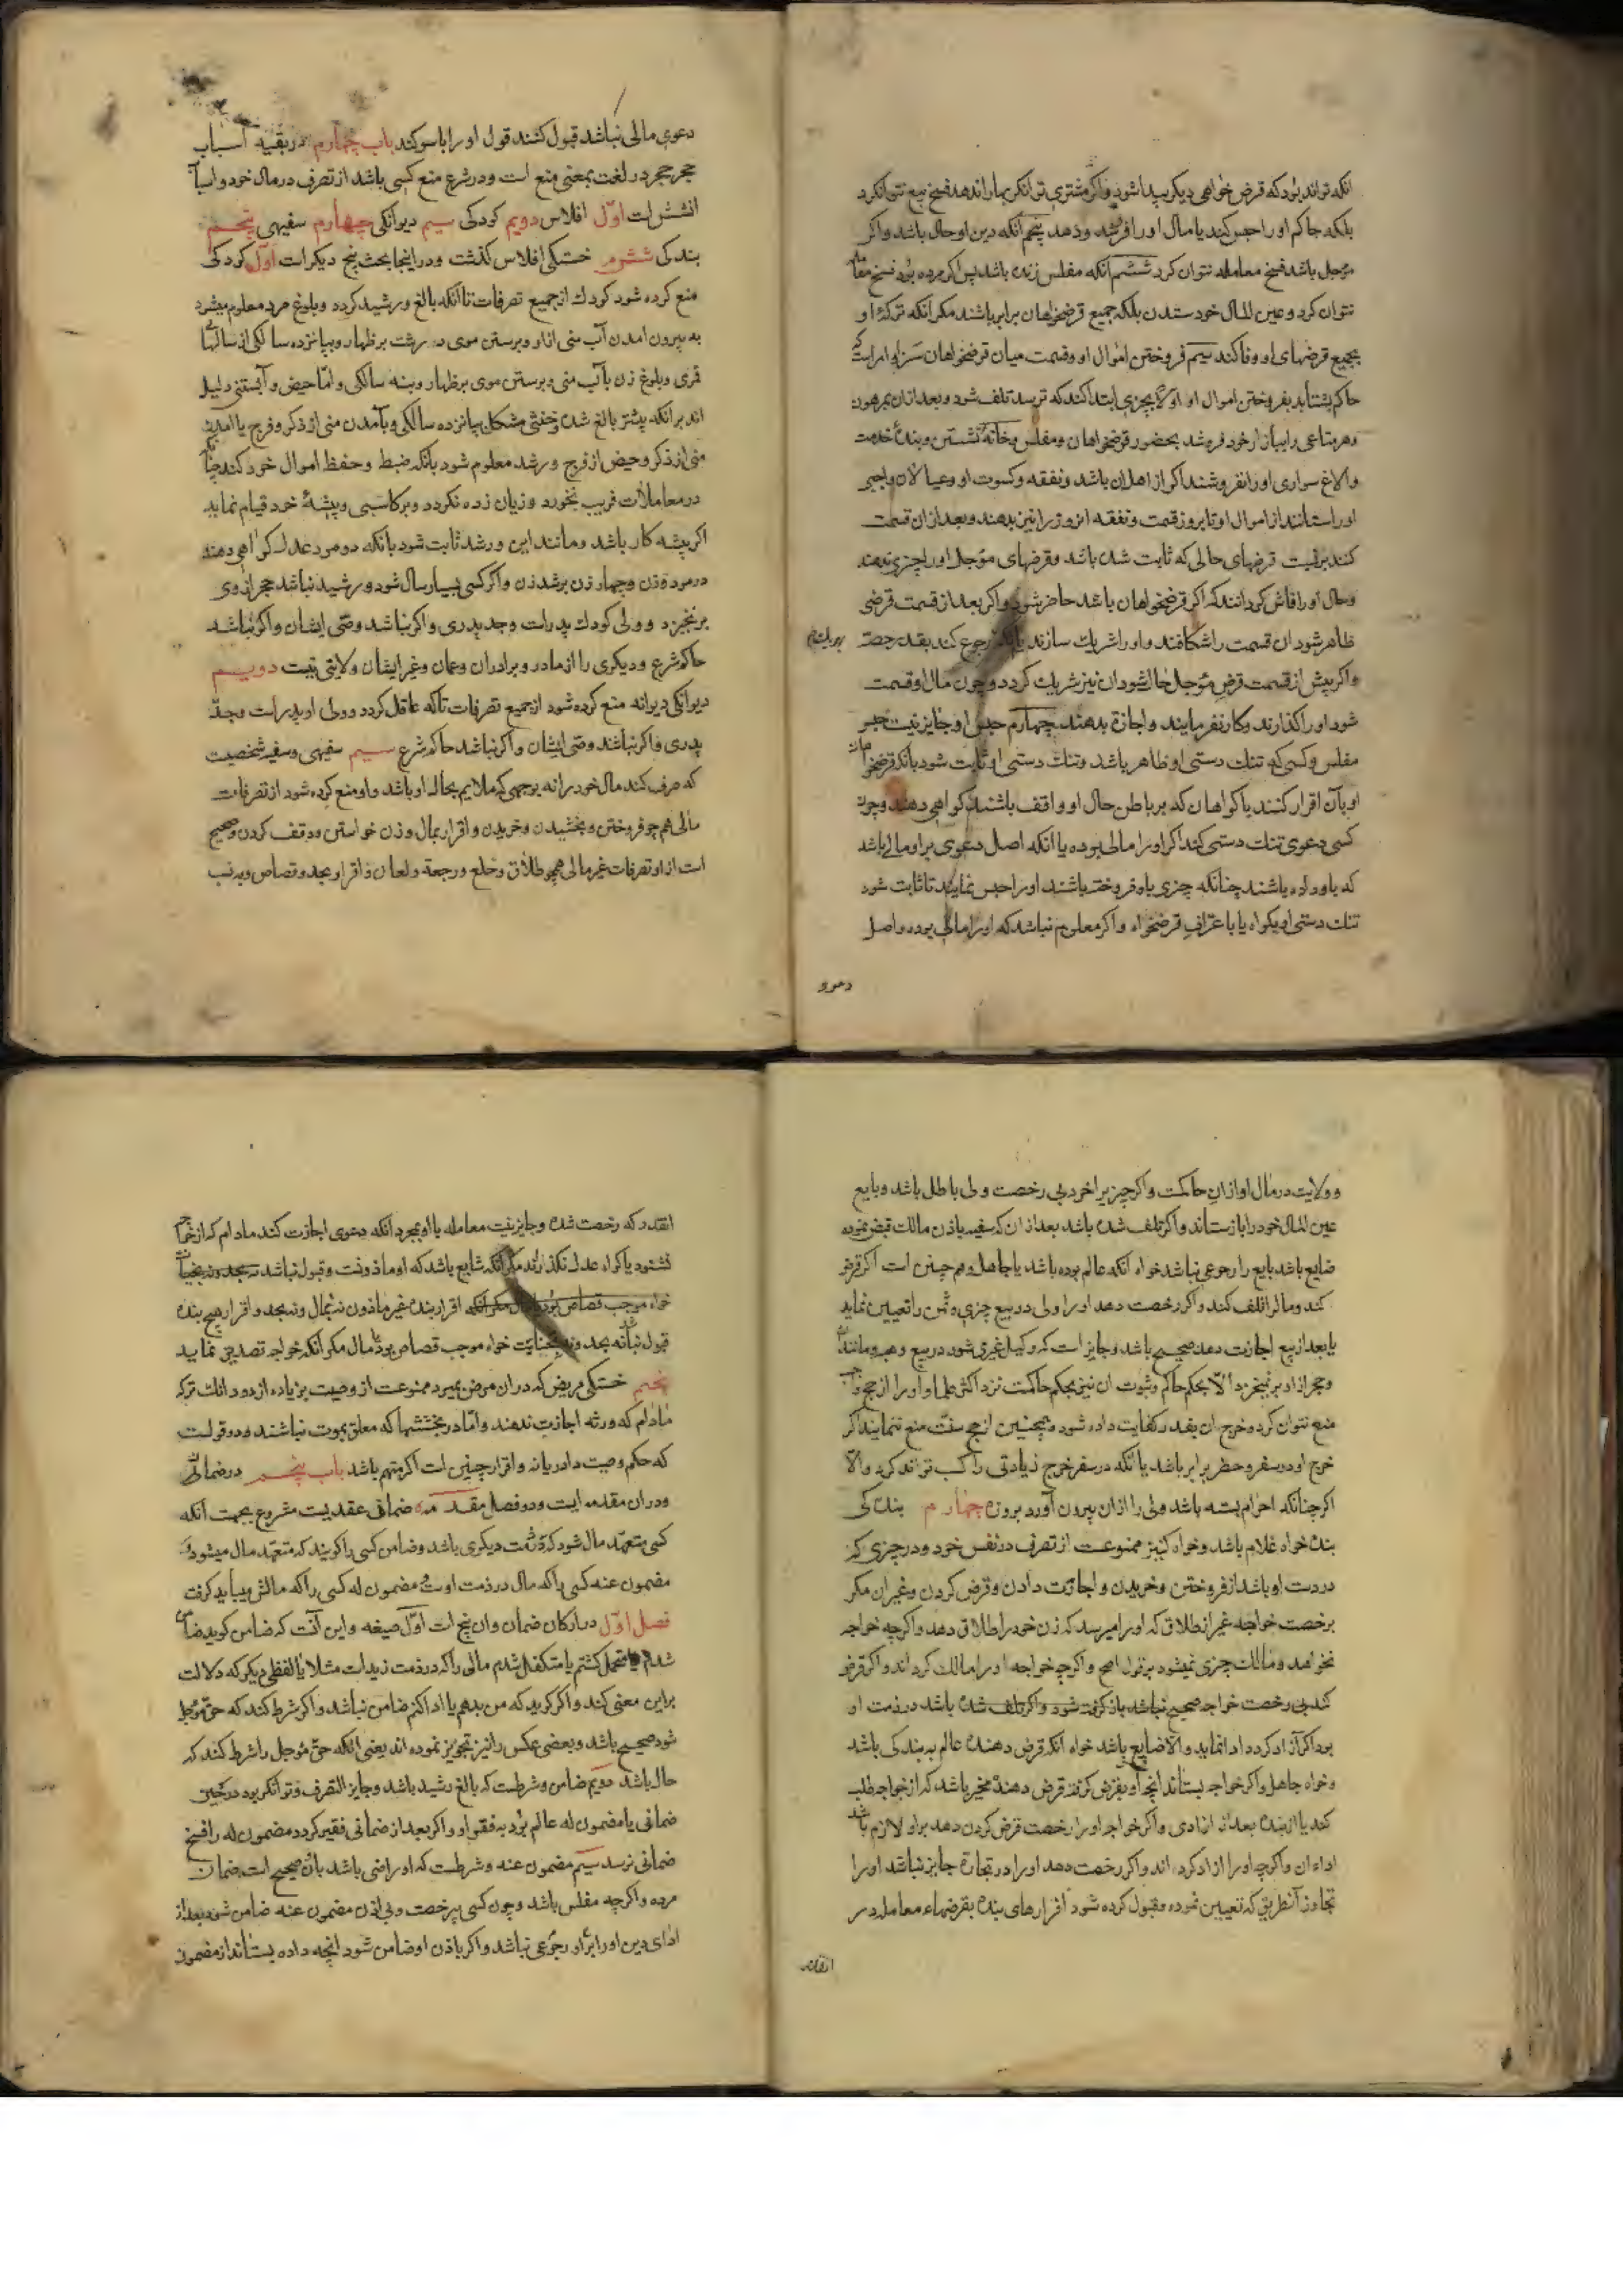 انکه تواند بود که قرض خواهی دیکر پیدا شود و اکر مشتری توانکر بها را ندهد فسخ بیع نتوان کرد
بلکه حاکم او را حبس کند یا مال او را فروشد و دهد پنجم آنکه دین او حال باشد و اکر
مؤجل باشد فسخ معامله نتوان کرد ششم آنکه مفلس زنده باشد پس اکر مرده بود فسخ معامله
نتوان کرد و عین المال خود ستدن بلکه جمیع قرضخواهان برابر باشند مکر آنکه ترکهٔ او
بجمیع قرضهای او وفا کند سیم فروختن اموال او و قسمت میان قرضخواهان
حاکم بشتابد بفروختن اموال او اولا بچیزی ابتدا کند که ترسد تلف شود و بعد از ان بمرهون
و هر متاعی را ببازار خود فروشد بحضور قرضخواهان و مفلس و خانهٔ نشستن و بندهٔ خدمت
والاغ سواری او را نفروشند اکر از اهل ان باشد و نفقه و کسوت او و عیالان واجبی
او را ستانند از اموال او تا بروز قسمت و نفقه انروز را نیز بدهند و بعد از ان قسمت
کنند بر نسبت قرضهای حالی که ثابت شده باشد و قرضهای مؤجل او را چیزی ندهند
و حال او را فاش کردانند که اکر قرضخواهان باشد حاضر شود و اکر بعد از قسمت قرضی
ظاهر شود ان قسمت را شکافند و او را شریک سازند یا آنکه رجوع کند بقدر حصه
و اکر پیش از قسمت قرض مؤجل حال شود ان نیز شریک کردد و چون مال او قسمت
شود او را کذارند و کار نفرمایند و اجازة بدهند چهارم حبس او و جایز نیست حبس
مفلس و کسی که تنک دستی او ظاهر باشد و تنک دستی او ثابت شود بانکه قرضخواهان
او بآن اقرار کنند یا کواهان که بر باطن حال او واقف باشند کواهی دهند و چون
کسی دعوی تنک دستی کند اکر او را مالی بوده یا آنکه اصل دعوی بر او مالی باشد
که باو داده باشند چنانکه چیزی باو فروخته باشند او را حبس نمایند تا ثابت شود
تنک دستی او بکواه یا باعتراف قرضخواه و اکر معلوم نباشد که او را مالی بوده و اصل
دعوی
دعوی مالی نباشد قبول کنند قول او را با سوکند باب چهارم در بقیه اسباب
حجر حجر در لغت بمعنی منع است و در شرع منع کسی باشد از تصرف در مال خود و اسباب
ان شش است اول افلاس دویم کودکی سیم دیوانکی چهارم سفیهی پنجم
بندکی ششم خستکی افلاس کذشت و در اینجا بحث پنج دیکر است اول کودکی
منع کرده شود کودک از جمیع تصرفات تا آنکه بالغ و رشید کردد و بلوغ مرد معلوم میشود
به بیرون امدن آب منی از او و برستن موی درشت بر ظهار و بپانزده سالکی از سالهای
قمری و بلوغ زن بآب منی و برستن موی بر ظهار و بنه سالکی و اما حیض و آبستنی دلیل
اند بر انکه پیشتر بالغ شده و خنثی مشکل بپانزده سالکی و بآمدن منی از ذکر و فرج یا آمدن
منی از ذکر و حیض از فرج و رشد معلوم شود بانکه ضبط و حفظ اموال خود کند چنانکه
در معاملات فریب نخورد و زیان زده نکردد و بر کاسبی و پیشهٔ خود قیام نماید
اکر پیشه کار باشد و مانند این و رشد ثابت شود بانکه دو مرد عدل کواهی دهند
در مرد و زن و چهار زن برشد زن و اکر کسی بسیار سال شود و رشید نباشد حجر از وی
برنخیزد و ولی کودک پدر است و جد پدری و اکر نباشد وصی ایشان و اکر نباشد
حاکم شرع و دیکری را از مادر و برادران و عمان و غیر ایشان ولایتی نیست دویم
دیوانکی دیوانه منع کرده شود از جمیع تصرفات تا که عاقل کردد و ولی او پدر است و جد
پدری و اکر نباشند وصی ایشان و اکر نباشد حاکم شرع سیم سفیهی و سفیه شخصیست
که صرف کند مال خود را نه بوجهی که ملایم بحال او باشد و او منع کرده شود از تصرفات
مالی همچو فروختن و بخشیدن و خریدن و اقرار بمال و زن خواستن و وقف کردن و صحیح
است از او تصرفات غیر مالی همچو طلاق و خلع و رجعة و لعان و اقرار بحد و قصاص و به نسب
و ولایت در مال او از ان حاکمست و اکر چیزیرا خرد بی رخصت ولی باطل باشد و بایع
عین المال خود را بازستاند و اکر تلف شده باشد بعد از ان که سفیه باذن مالک قبض نموده
ضایع باشد بایع را رجوعی نباشد خواه آنکه عالم بوده باشد یا جاهل و هم چنین است اکر قرض
کند و مال را تلف کند و اکر رخصت دهد او را ولی در بیع چیزی و ثمن را تعیین نماید
یا بعد از بیع اجازت دهد صحیح باشد و جایز است که وکیل غیری شود در بیع و هبه و مانند ان
و حجر از او برنخیزد الا بحکم حاکم و ثبوت ان نیز بحکم حاکمست نزد اکثر علما و او را از حج واجب
منع نتوان کرد و خرج ان بقدر کفایت داده شود و همچنین از حج سنت منع ننمایند اکر
خرج او در سفر و حضر برابر باشد یا آنکه در سفر خرج زیادتی را کسب تواند کرد و الا
اکر چنانکه احرام بسته باشد ولی را از ان بیرون آورد بروزه چهارم بندکی
بنده خواه غلام باشد و خواه کنیز ممنوعست از تصرف در نفس خود و در چیزی که
در دست او باشد از فروختن و خریدن و اجازت دادن و قرض کردن و غیر ان مکر
برخصت خواجه غیر از طلاق که او را میرسد که زن خود را طلاق دهد و اکرچه خواجه
نخواهد و مالک چیزی نمیشود بر قول اصح و اکرچه خواجه او را مالک کرداند و اکر قرض
کند بی رخصت خواجه صحیح نباشد باز کرفته شود و اکر تلف شده باشد در ذمت او
بود اکر آزاد کردد ادا نماید و الا ضایع باشد خواه آنکه قرض دهنده عالم به بندکی باشد
و خواه جاهل و اکر خواجه بستاند آنچه او بقرض کرفته قرض دهنده مخیر باشد که از خواجه طلب
کند یا از بنده بعد از ازادی و اکر خواجه او را رخصت قرض کردن دهد بر او لازم باشد
اداء ان و اکرچه او را ازاد کرداند و اکر رخصت دهد او را در تجارة جایز نباشد او را
تجاوز از آنطریق که تعیین نموده و قبول کرده شود اقرارهای بنده بقرضهاء معامله در
انقدر
انقدر که رخصت شده و جایز نیست معامله با او بمجرد آنکه دعوی اجازت کند مادام که از خواجه
نشنود یا کواه عدل نکذارند مکر آنکه شایع باشد که او ماذونست و قبول نباشد
خواه موجب قصاص بود مکر آنکه اقرار بنده غیر ماذون نه بمال و نه بحد و اقرار هیچ بنده
قبول نباشد نه بحد و نه بجنایت خواه موجب قصاص بود یا مال مکر آنکه خواجه تصدیق نماید
پنجم خستکی مریض که در ان مرض بمیرد ممنوعست از وصیت بزیاده از دو دانک ترکه
مادام که ورثه اجازت ندهند و اما در بخششها که معلق بموت نباشند دو قولست
که حکم وصیت دارد یا نه و اقرار چنین است اکر متهم باشد باب پنجم در ضمان
و در ان مقدمه ایست و دو فصل مقدمه ضمان عقدیست مشروع بجهت آنکه
کسی متعهد مال شود که در ذمت دیکری باشد و ضامن کسی را کویند که متعهد مال میشود و
مضمون عنه کسی را که مال در ذمت اوست و مضمون له کسی را که مالش میباید کرفت
فصل اول در ارکان ضمان و ان پنج است اول صیغه و این آنست که ضامن کوید ضامن
شدم یا متحمل کشتم یا متکفل شدم مالی را که در ذمت زید است مثلا یا لفظی دیکر که دلالت
بر این معنی کند و اکر کوید که من بدهم یا ادا کنم ضامن نباشد و اکر شرط کند که حق مؤجل
شود صحیح باشد و بعضی عکس را نیز تجویز نموده اند یعنی آنکه حق مؤجل را شرط کنند که
حال باشد دویم ضامن و شرطست که بالغ رشید باشد و جایز التصرف و توانکر بود در حین
ضمان یا مضمون له عالم بود به فقر او و اکر بعد از ضمان فقیر کردد مضمون له را فسخ
ضمان نرسد سیم مضمون عنه و شرطست که او راضی باشد بان صحیح است ضمان
مرده و اکرچه مفلس باشد و چون کسی بی رخصت و بی اذن مضمون عنه ضامن شود بعد از
ادای دین او را بر او رجوعی نباشد و اکر باذن او ضامن شود انچه داده بستاند از مضمون